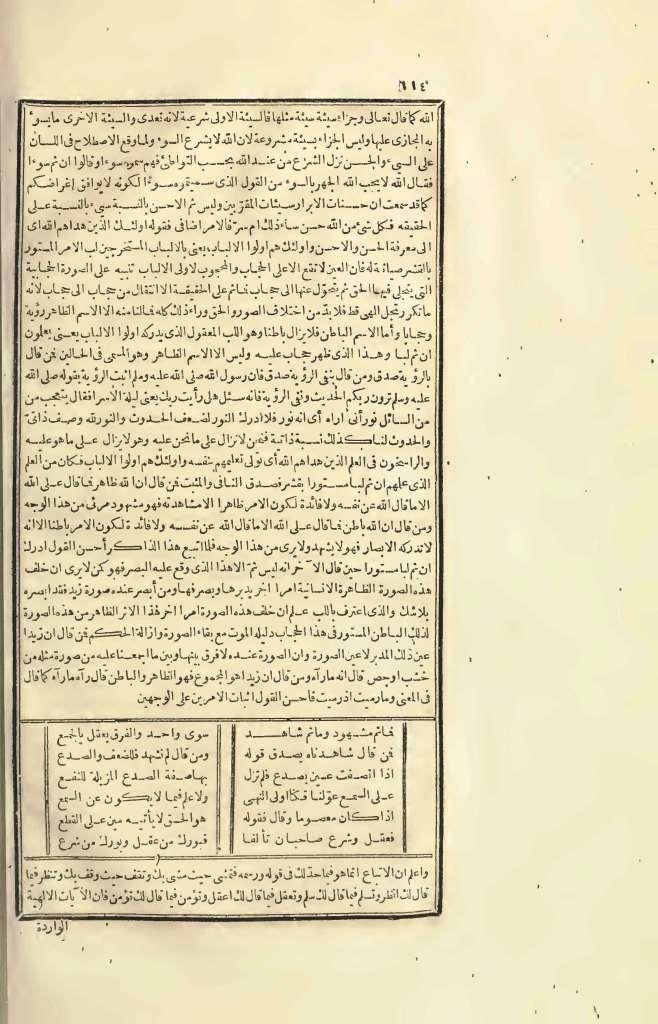 ٦١٤
الله كما قال تعالى وجزاء سيئة سيئة مثلها فالسيئة الاولى شرعية لانه تعدى والسيئة الاخرى ما يسوء
به المجازى عليها وليس الجزاء بسيئة مشروعة لان الله لا يشرع السوء ولما وقع الاصطلاح فى اللسان
على السيء والحسن نزل الشرع من عند الله بحسب التواطئ فهم سموه سوءا وقالوا ان ثم سوءا
فقال الله لا يحب الله الجهر بالسوء من القول الذى سميتموه سوءا لكونه لا يوافق اغراضكم
كما قد سمعت ان حسنات الابرار سيئات المقربين وليس ثم الاحسن بالنسبة سيء بالنسبة على
الحقيقة فكل شئ من الله حسن ساء ذلك ام سر فالامر اضافى فقوله اولئك الذين هداهم الله اى
الى معرفة الحسن والاحسن واولئك هم اولوا الالباب يعنى بالالباب المستخرجين لب الامر المستور
بالقشر صيانة له فان العين لا تقع الا على الحجاب والمحجوب لاولى الالباب تنبيه على الصورة الحجابية
التى يتجلى فيها الحق ثم يتحول عنها الى حجاب فما ثم على الحقيقة الا انتقال من حجاب الى حجاب لانه
ما تكرر تجل الهى قط فلا بد من اختلاف الصور والحق وراء ذلك كله فما لنا منه الا الاسم الظاهر رؤية
وحجابا وأما الاسم الباطن فلا يزال باطنا وهو اللب المعقول الذى يدركه اولوا الالباب يعنى يعلمون
ان ثم لبا وهذا الذى ظهر حجاب عليه وليس الا الاسم الظاهر وهو المسمى فى الحالين فمن قال
بالرؤية صدق ومن قال بنفى الرؤية صدق فان رسول الله صلى الله عليه وسلم اثبت الرؤية بقوله صلى الله
عليه وسلم ترون ربكم الحديث ونفى الرؤية فانه سئل هل رأيت ربك يعنى ليلة الاسرا فقال يتعجب من
من السائل نور أنى أراه أى انه نور فلا ادرك النور لضعف الحدوث والنور لله وصف ذاتى
والحدوث لنا كذلك نسبة ذاتية فنحن لا نزال على ما نحن عليه وهو لا يزال على ما هو عليه
والراسخون فى العلم الذين هداهم الله أى تولى تعليمهم بنفسه واولئك هم اولوا الالباب فكان من العلم
الذى علمهم ان ثم لبا مستورا بقشر فصدق النافى والمثبت فمن قال ان الله ظاهر فما قال على الله
الا ما قال الله عن نفسه ولا فائدة لكون الامر ظاهرا الا مشاهدته فهو مشهود مرئى من هذا الوجه
ومن قال ان الله باطن فما قال على الله الا ما قال الله عن نفسه ولا فائدة لكون الامر باطنا الا انه
لا تدركه الابصار فهو لا يشهد ولا يرى من هذا الوجه فلما اتبع هذا الذاكر أحسن القول ادرك
ان ثم لبا مستورا حين قال الآخر انه ليس ثم الا هذا الذى وقع عليه البصر فهو كمن لا يرى ان خلف
هذه الصورة الظاهرة الانسانية امرا آخر يدبرها ويصرفها ومن أبصر عنده صورة زيد فقد ابصره
بلا شك والذى اعترف باللب علم ان خلف هذه الصورة امرا آخر فهذا الاثر الظاهر من هذه الصورة
لذلك الباطن المستور فى هذا الحجاب دليله الموت مع بقاء الصورة وازالة الحكم فمن قال ان زيدا
عين ذلك المدبر لا عين الصورة وان الصورة عنده لا فرق بينها وبين ما اجمعنا عليه من صورة مثله من
خشب أو جص قال انه ما رآه ومن قال ان زيدا هو المجموع فهو الظاهر والباطن قال رآه ما رآه كما قال
فى المعنى وما رميت اذ رميت فاحسن القول اثبات الامرين على الوجهين
فما ثم مشهود وما ثم شاهد سوى واحد والفرق يعقل بالجمع
فمن قال شاهدناه يصدق قوله ومن قال لم نشهد فللضعف والصدع
اذا اتصفت عين بصدع فلم تزل بها صفة الصدع المزيلة للنفع
على السمع عولنا فكنا اولى النهى ولا علم فيما لا يكون عن السمع
اذا كان معصوما وقال فقوله هو الحق لا يأتيه مين على القطع
فعقل وشرع صاحبان تألفا فبورك من عقل وبورك من شرع
واعلم ان الاتباع انما هو فيما حده لك فى قوله ورسمه فتمشى حيث مشى بك وتقف حيث وقف بك وتنظر فيما
قال لك انظر وتسلم فيما قال لك سلم وتعقل فيما قال لك اعقل وتؤمن فيما قال لك تؤمن فان الآيات الالهية
الواردة